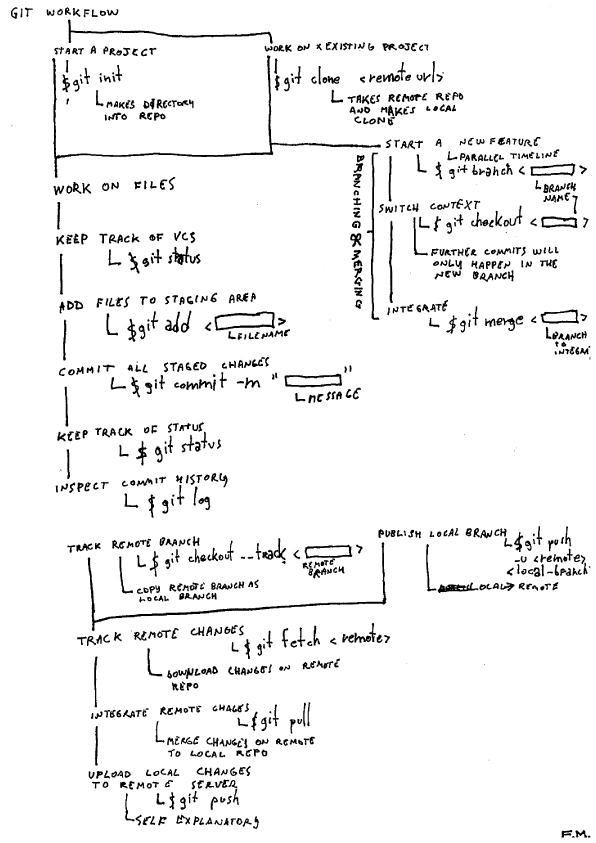 GIT WORKFLOW
START A PROJECT
$ git init
MAKES DIRECTORY
INTO REPO
WORK ON EXISTING PROJECT
$ git clone <remote url>
TAKES REMOTE REPO
AND MAKES LOCAL
CLONE
BRANCHING & MERGING
START A NEW FEATURE
PARALLEL TIMELINE
$ git branch < >
BRANCH
NAME
SWITCH CONTEXT
$ git checkout < >
FURTHER COMMITS WILL
ONLY HAPPEN IN THE
NEW BRANCH
INTEGRATE
$ git merge < >
BRANCH
TO
INTEGRA
WORK ON FILES
KEEP TRACK OF VCS
$ git status
ADD FILES TO STAGING AREA
$ git add < >
FILENAME
COMMIT ALL STAGED CHANGES
$ git commit -m " "
MESSAGE
KEEP TRACK OF STATUS
$ git status
INSPECT COMMIT HISTORY
$ git log
TRACK REMOTE BRANCH
$ git checkout --track < >
REMOTE
BRANCH
COPY REMOTE BRANCH AS
LOCAL BRANCH
PUBLISH LOCAL BRANCH
$ git push
-u <remote>
<local-branch
LOCAL > REMOTE
TRACK REMOTE CHANGES
$ git fetch <remote>
DOWNLOAD CHANGES ON REMOTE
REPO
INTEGRATE REMOTE CHAGES
$ git pull
MERGE CHANGES ON REMOTE
TO LOCAL REPO
UPLOAD LOCAL CHANGES
TO REMOTE SERVER
$ git push
SELF EXPLANATORY
F.M.